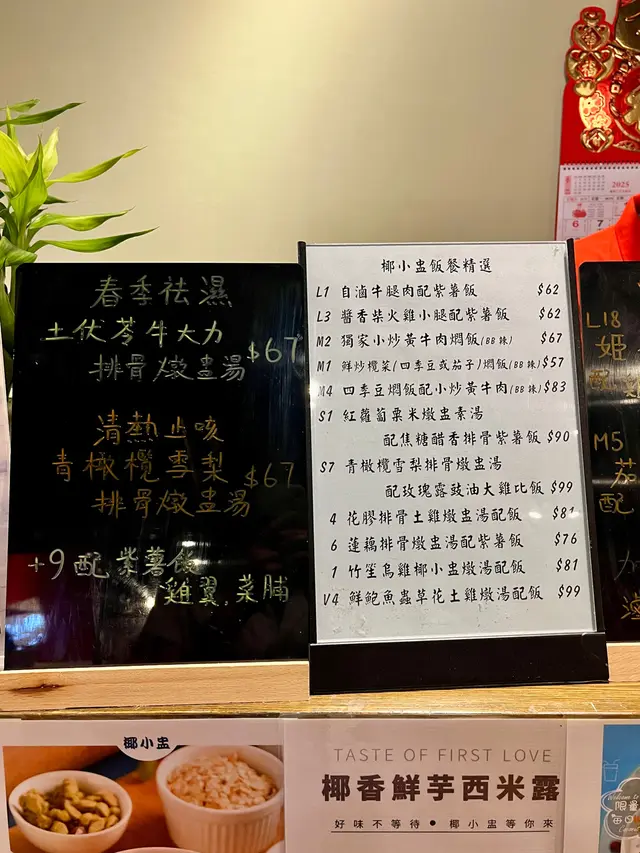 春季祛濕
土伏苓牛大力
排骨燉盅湯 $67
清熱止咳
青橄欖雪梨
排骨燉盅湯 $67
+9 配紫薯飯
雞翼.菜脯
椰小盅飯餐精選
L1 自滷牛腿肉配紫薯飯 $62
L3 醬香柴火雞小腿配紫薯飯 $62
M2 獨家小炒黃牛肉燜飯(BB辣) $67
M1 鮮炒欖菜(四季豆或茄子)燜飯(BB辣) $57
M4 四季豆燜飯配小炒黃牛肉(BB辣) $83
S1 紅蘿蔔粟米燉盅素湯
配焦糖醋香排骨紫薯飯 $90
S7 青橄欖雪梨排骨燉盅湯
配玫瑰露豉油大雞比飯 $99
4 花膠排骨土雞燉盅湯配飯 $81
6 蓮藕排骨燉盅湯配紫薯飯 $76
1 竹笙烏雞椰小盅燉湯配飯 $81
V4 鮮鮑魚蟲草花土雞燉湯配飯 $99
L18
姬
配
M5
茄
配
加
2025
6 7
椰小盅
TASTE OF FIRST LOVE
椰香鮮芋西米露
好味不等待 • 椰小盅等你來
Welcome to
限量
每日